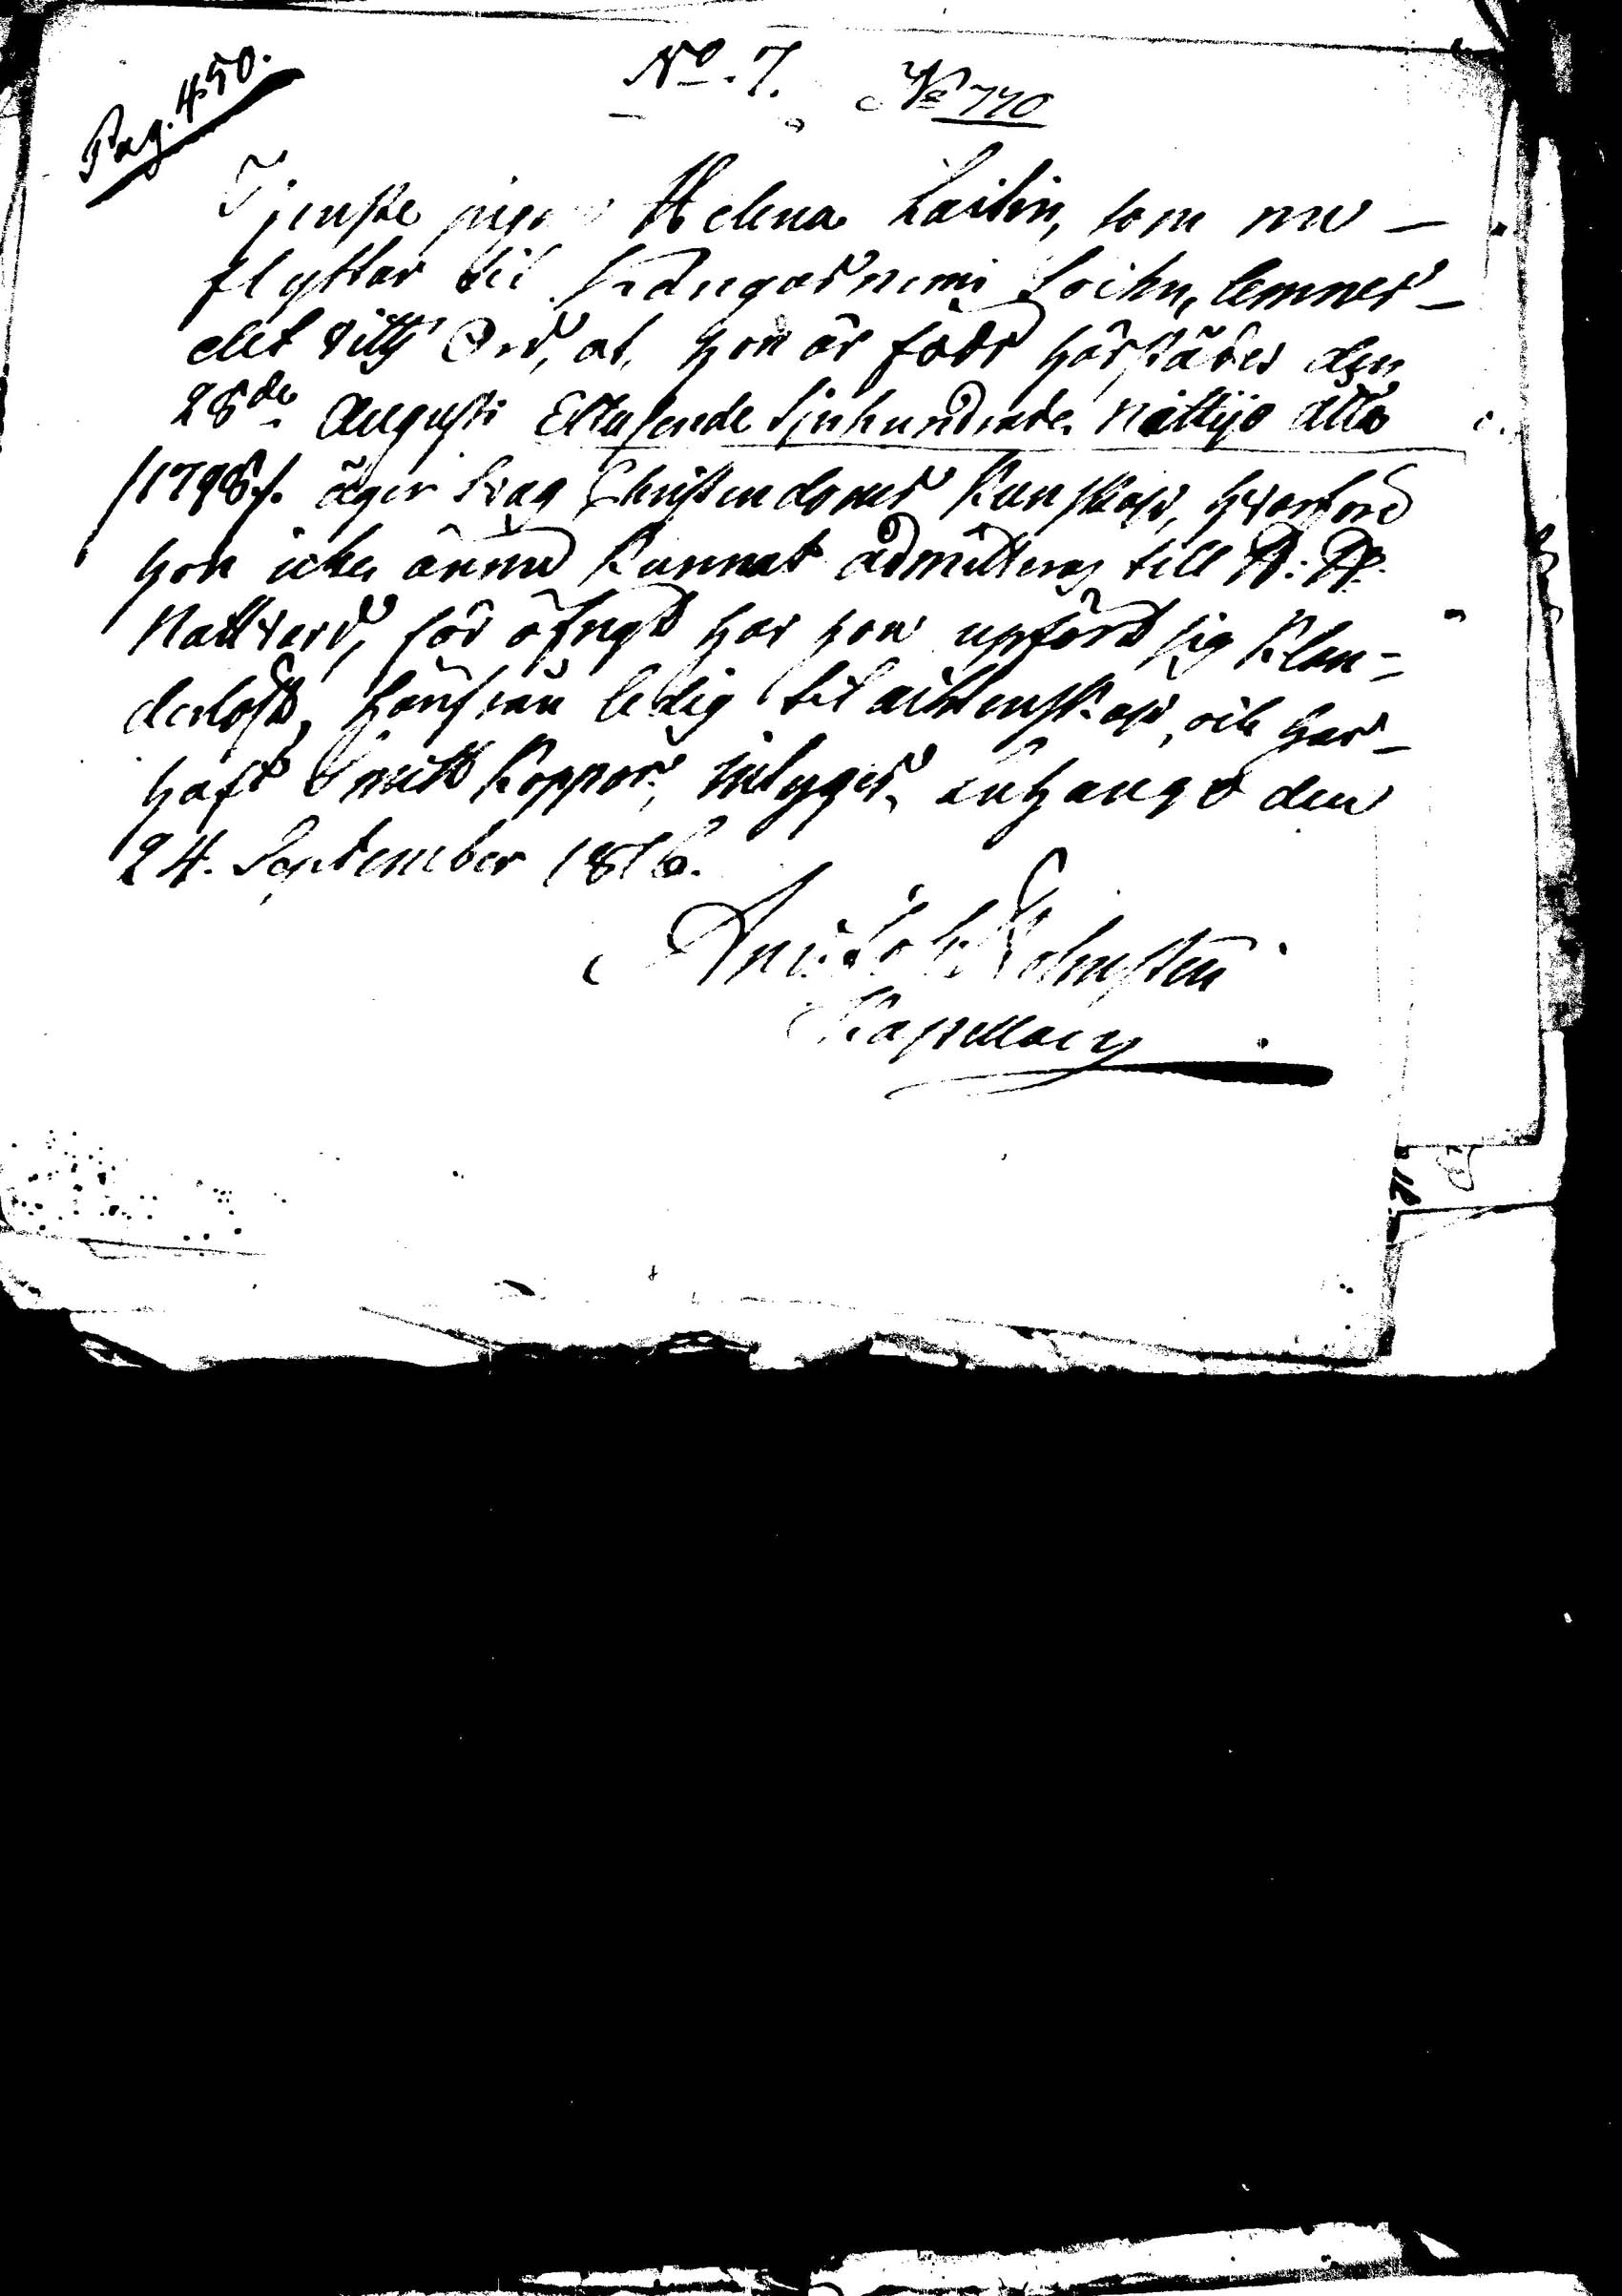 Pag. 450.
No. 7. No 770
Tjenste pigan Helena Laitin, som nu
flyttar til Kangasniemi Sockn, lemnas
det vittsord, at hon är född härstädes den
28de Augusti Ettusende Sjuhundrade Nittijo åtta
/1798/. äger svag Christendoms kunskap, hvarföre
hon icke ännu kunnat admitteras till H: H:
Nattvard, för öfrigt har hon upfördt sig klan=
derlöst, härifrån ledig til ächtenskap, och har
haft Smitt koppor, intygar, den
24. September 1816.
Kapellan